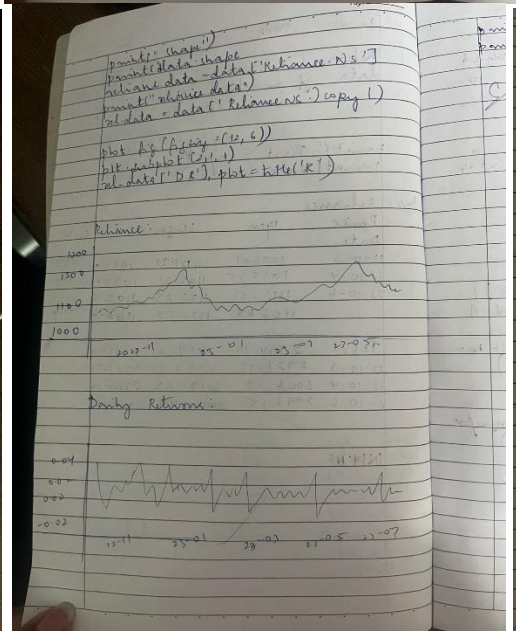 print(" Shape")
print(data shape
reliane data = data['Reliance. Ns']
print("reliance data")
rel.data = data['Reliance NS') copy ()
plot fig (figsize = (12, 6))
plt.subplot (2,1,1)
rel.data['DR'], plot = title('R')
Reliance:
1300
1200
1100
1000
2022-11 23-01 23-03 23-05
Daily Returns:
0.04
0.02
0.00
-0.02
22-11 23-01 23-03 23-05 23-07